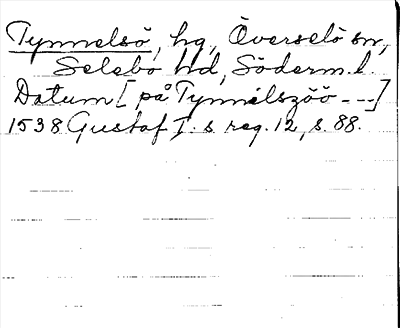 Tynnelsö, hg, Överselö sn,
Selebo hd, Söderm. l.
Datum [ på Tynnelszöö ---]
1538 Gustaf I. s reg. 12, s. 88.